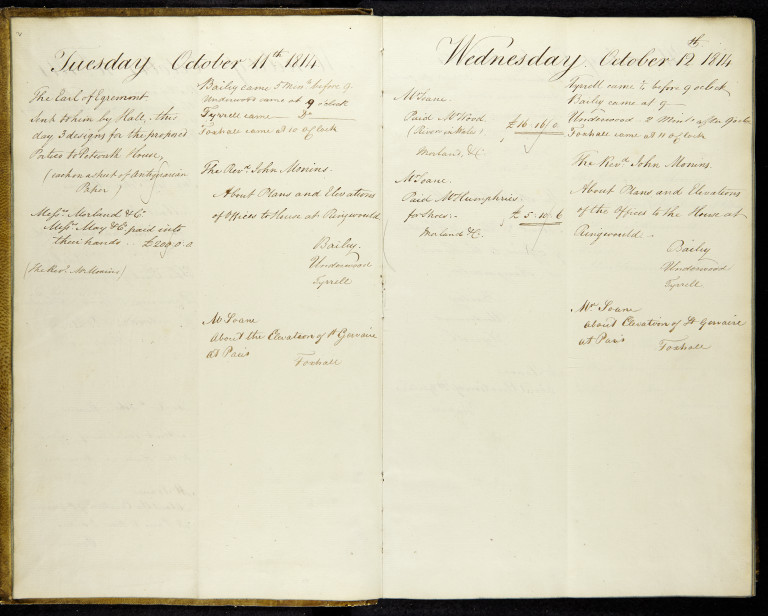 Tuesday October 11th 1814
The Earl of Egremont
Sent to him by Hall, this
day 3 designs for the proposed
Portico to Petworth House,
(each on a sheet of Antiquarian
Paper)
Messrs. Morland & Co.
Messrs. May & Co. paid into
their hands. £200.0.0
(The Revd. Mr Monins)
Bailey came 5 Mints before 9.
Underwood came at 9 o'clock
Tyrrell came — Do —
Foxhall came at 10 o Clock
The Revd. John Monins.
About Plans and Elevations
of Offices to House at Ringwould
Bailey.
Underwood
Tyrrell
Mr Soane
About the Elevation of St Gervaise
at Paris
Foxhall
Wednesday October 12th 1814
Mr Soane.
Paid Mr Wood
(Rivers in Wales) £16.16.0.
Morland, & Co
Mr Soane.
Paid Mr Humphries.
for Shoes. £5.10.6
Morland & Co.
Tyrrell came ¼ before 9 o Clock
Bailey came at 9 —
Underwood — 2 Mints after 9 o Clock
Foxhall came at 10 o Clock
The Revd. John Monins.
About Plans and Elevations
of the Offices to the House at
Ringwould.
Bailey
Underwood
Tyrrell
Mr Soane
about Elevation of St Gervaise
at Paris
Foxhall